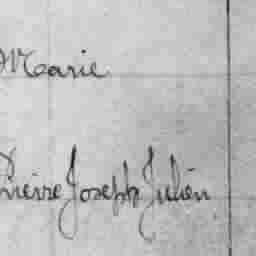 Marie
Pierre Joseph Julien